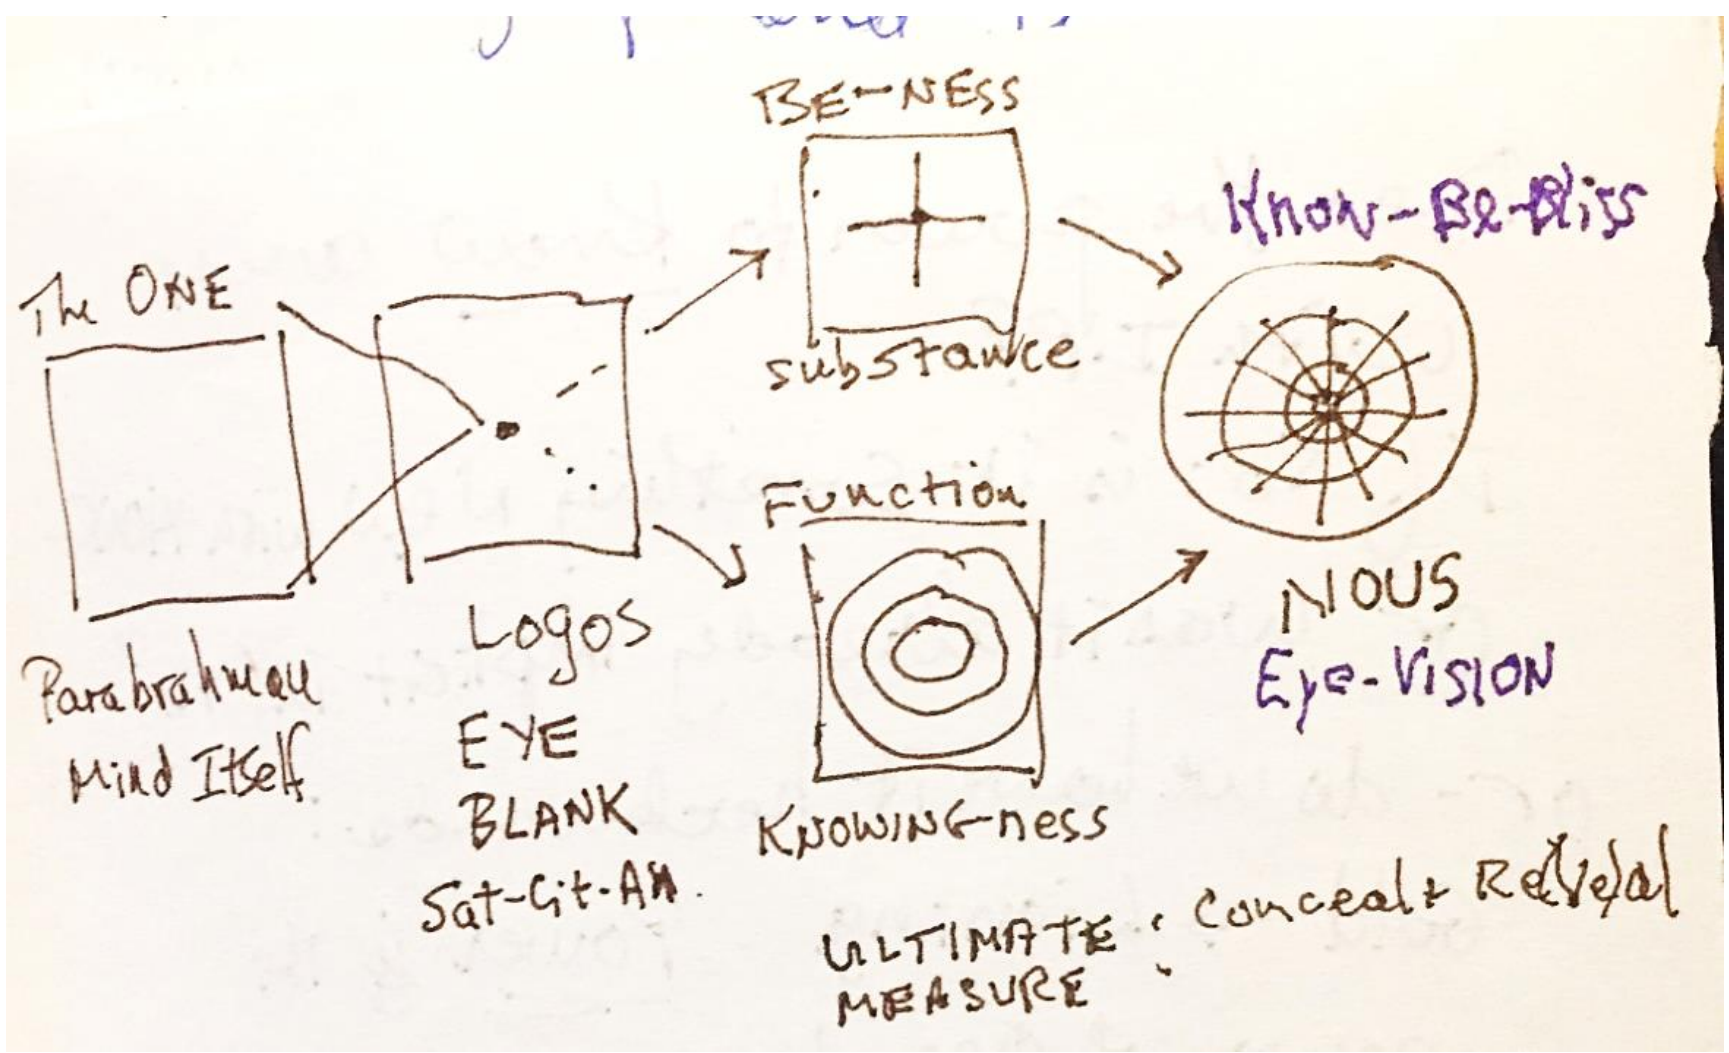 and is
The ONE
Parabrahman
Mind Itself
Logos
EYE
BLANK
Sat-Cit-AN.
BE-NESS
substance
Function
KNOWING-ness
Know-Be-Bliss
NOUS
Eye-VISION
ULTIMATE : Conceal + Reveal
MEASURE